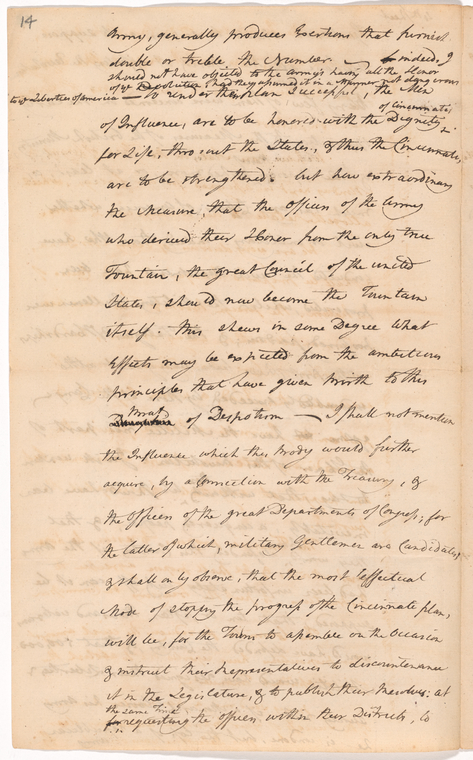 14
Army, generally produces Exertions that furnish
double or treble the Number. — indeed I
should not have objected to the Army's having all the Honor
of ye Revolution had they assumed it in a Manner not dangerous
to ye Liberties of america — To render their plan Successful, the Men
of Influence, are to be honored with the Dignity of cincinnati
for Life, thro'out the States, & thus the Cincinnati,
are to be strengthened. but how extraordinary
the Measure, that the officers of the Army
who derived their Honor from the only true
Fountain, the great Council of the united
States, should now become the Fountain
itself. this shews in some Degree what
Effects may be expected from the ambitious
principles that have given birth to this
of Despotism — I shall not mention
the Influence which this Body would further
acquire, by a Connection with the Treasury, &
the Officers of the great Departments of Congress; for
the latter of which, military Gentlemen are Candidates,
& shall only observe, that the most Effectual
Mode of stopping the progress of the Cincinnati plan,
will be, for the Towns to assemble on the Occasion
& instruct their Representatives to discountenance
it in the Legislature, & to publish their Resolves: at
the same Time
requesting the officers within their Districts, to